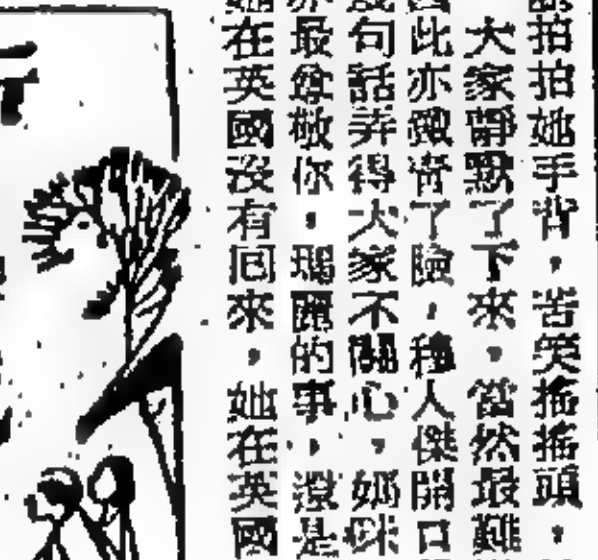 拍拍她手背，苦笑搖搖頭，
大家靜默了下來，當然最難
此亦鐵青了臉，穆人傑開口
句話弄得大家不開心，奶咪
最尊敬你，瑪麗的事，還是
在英國沒有回來，她在英國